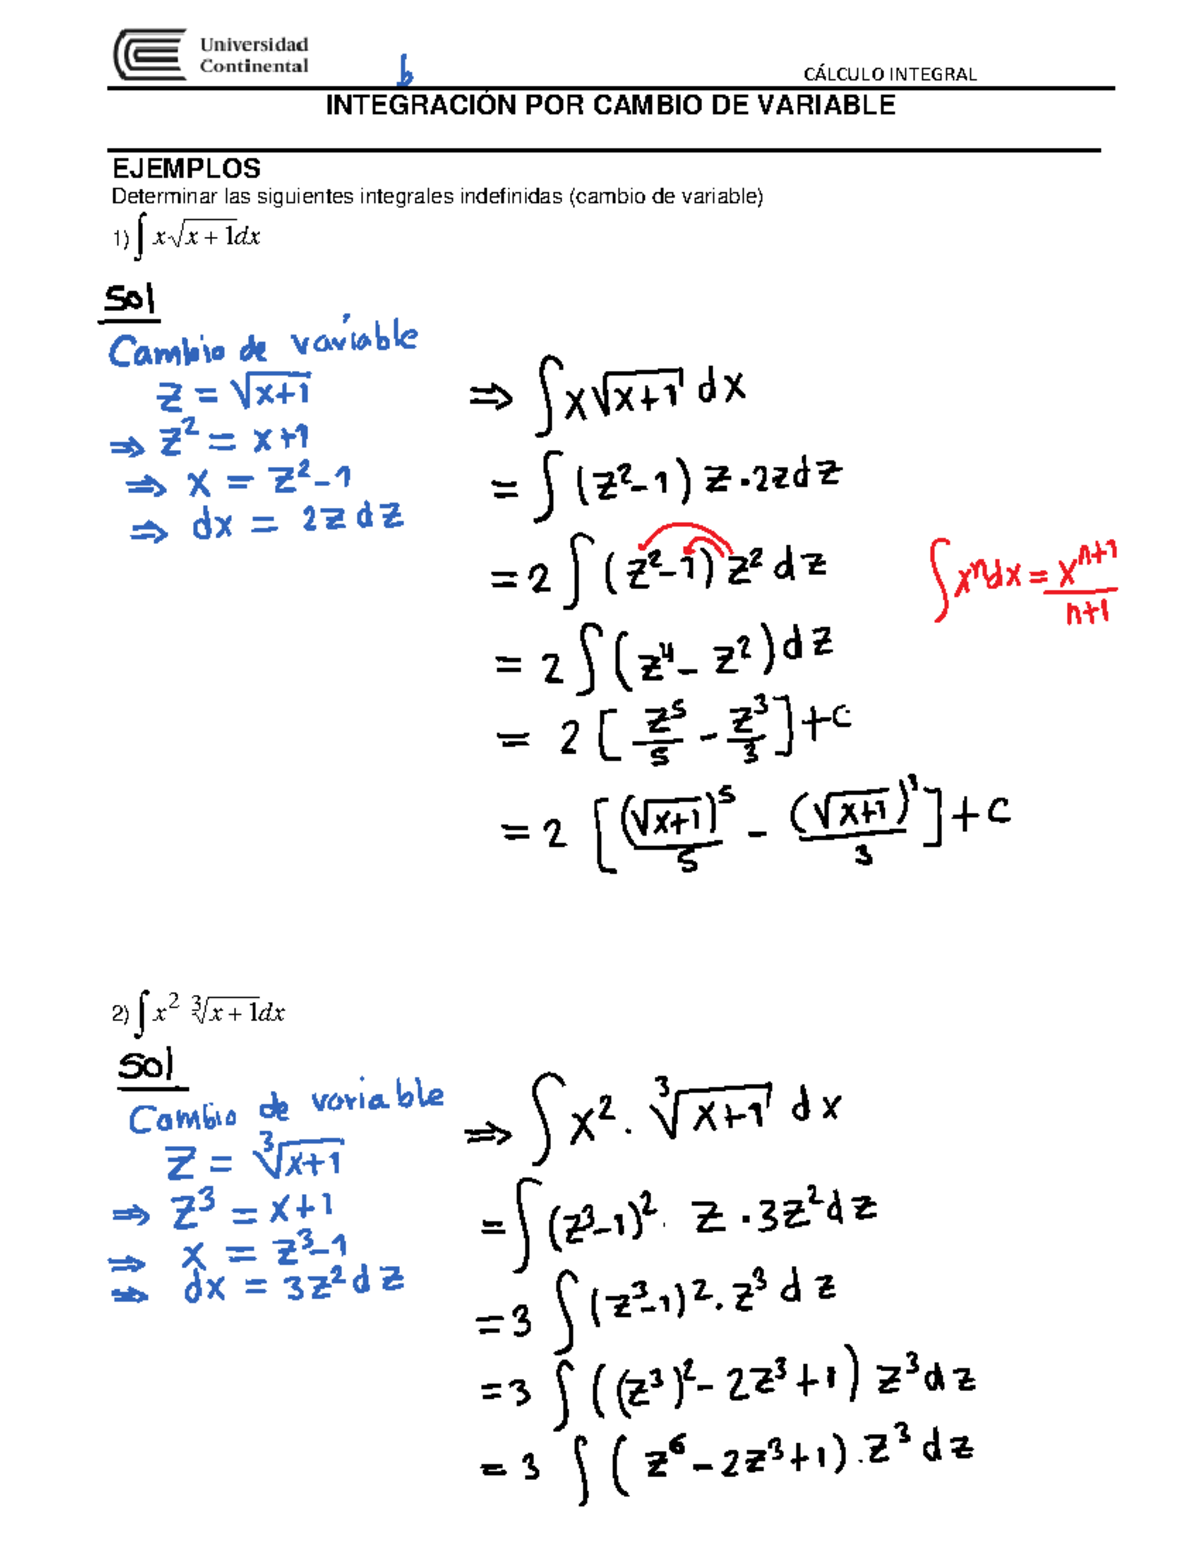 Universidad
Continental
b
CÁLCULO INTEGRAL
INTEGRACIÓN POR CAMBIO DE VARIABLE
EJEMPLOS
Determinar las siguientes integrales indefinidas (cambio de variable)
1) ∫ x√(x + 1)dx
Sol
Cambio de variable
z = √(x+1)
⇒ z² = x+1
⇒ x = z²-1
⇒ dx = 2z dz
⇒ ∫ x√(x+1) dx
= ∫ (z²-1) z · 2z dz
= 2 ∫ (z²-1) z² dz
∫ xⁿ dx = xⁿ⁺¹/(n+1)
= 2 ∫ (z⁴ - z²) dz
= 2 [ z⁵/5 - z³/3 ] + c
= 2 [ (√(x+1))⁵/5 - (√(x+1))³/3 ] + c
2) ∫ x² ∛(x + 1)dx
Sol
Cambio de variable
z = ∛(x+1)
⇒ z³ = x+1
⇒ x = z³-1
⇒ dx = 3z² dz
⇒ ∫ x² · ∛(x+1) dx
= ∫ (z³-1)² · z · 3z² dz
= 3 ∫ (z³-1)² · z³ dz
= 3 ∫ ((z³)² - 2z³ + 1) z³ dz
= 3 ∫ (z⁶ - 2z³ + 1) · z³ dz